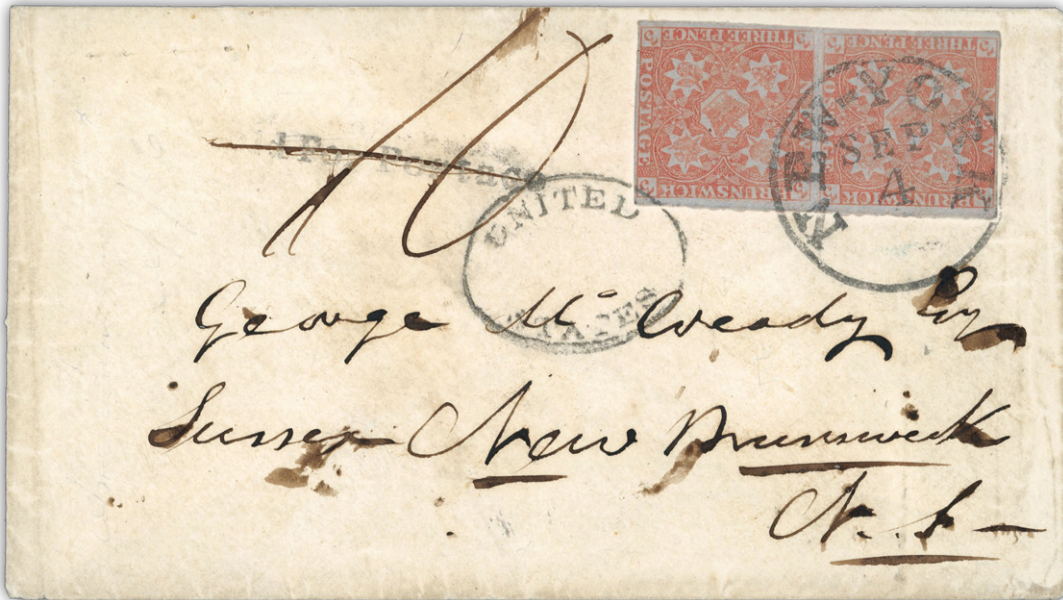 THREE PENCE
POSTAGE
BRUNSWICK
THREE PENCE
NEW
BRUNSWICK
NEW-YORK
SEP
4
10
UNITED
STATES
George Mc Cready Esq
Sussex New Brunswick
N. B